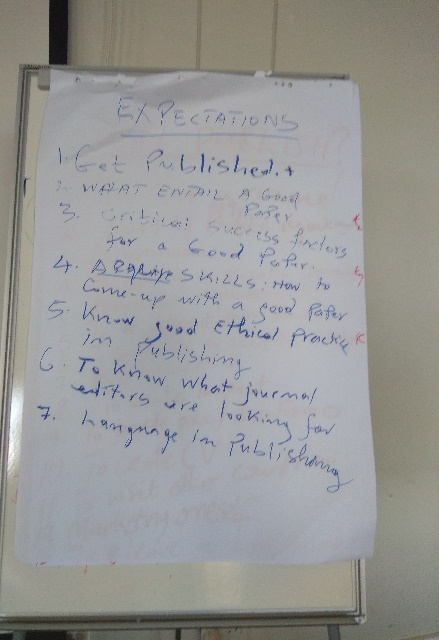 EXPECTATIONS
1. Get Published.
2. WHAT ENTAIL A Good
Paper
3. Critical success factors
for a Good Paper.
4. SKILLS: How to
Come-up with a good Paper
5. Know good Ethical practice
in Publishing
6. To Know what journal
editors are looking for
7. Language in Publishing